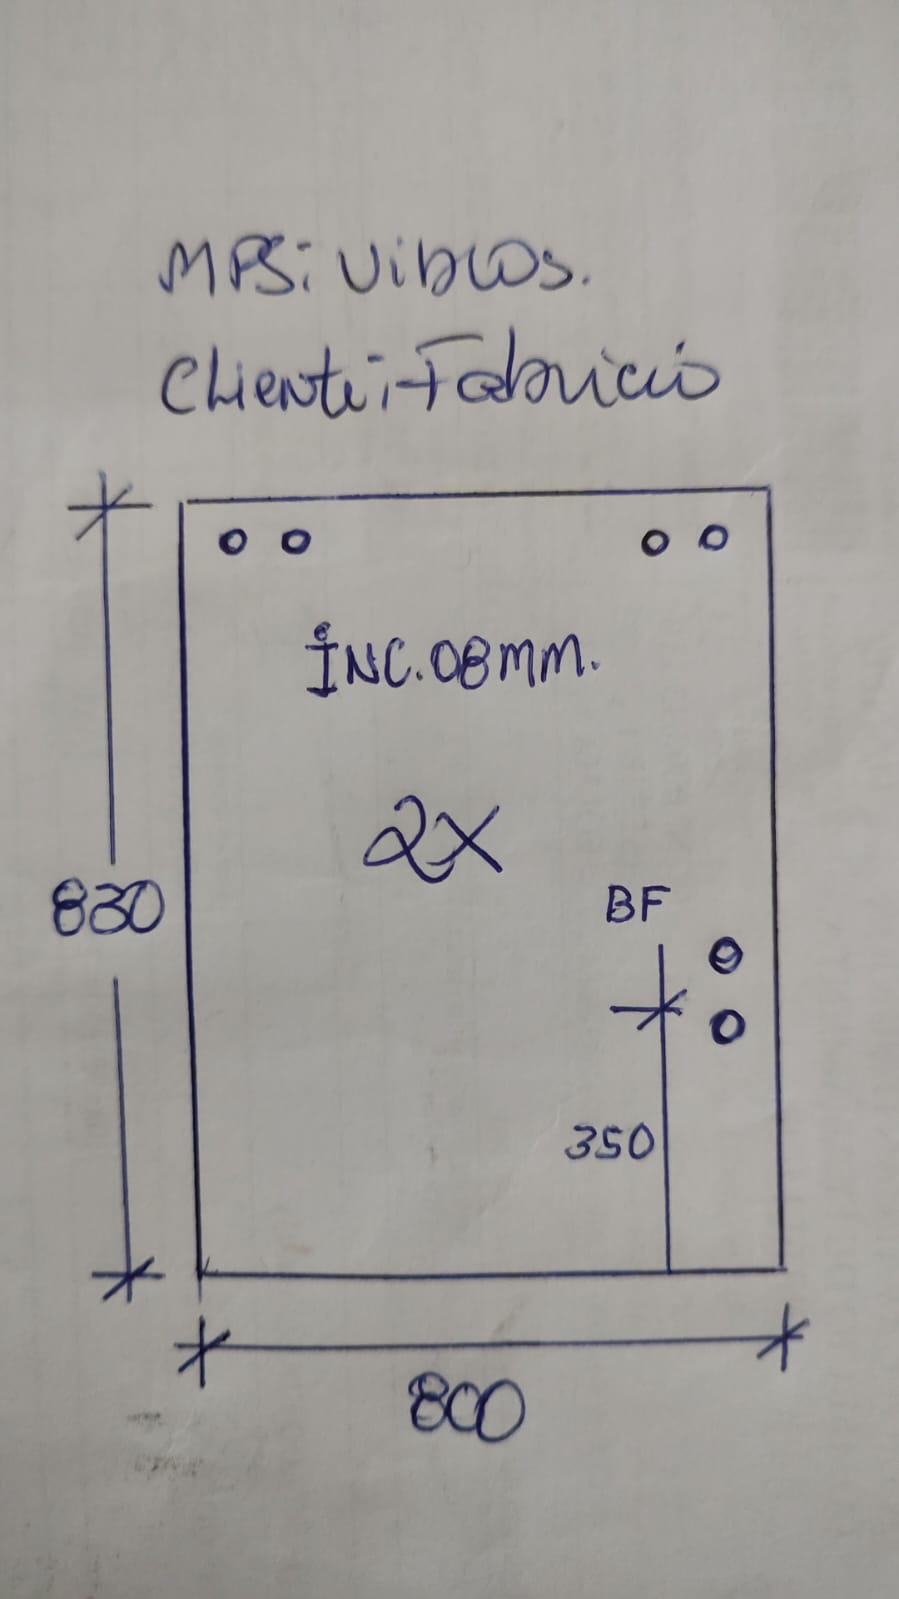 MPS: Vidros.
Cliente: Fabricio
INC. 08mm.
2X
830
BF
350
800